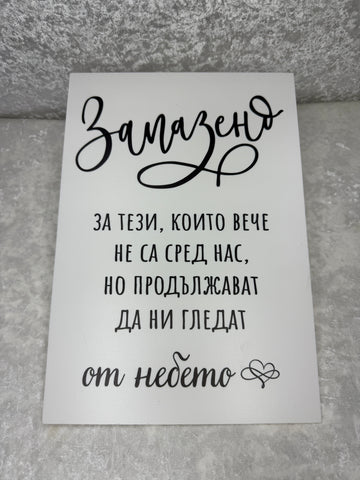 Запазено
ЗА ТЕЗИ, КОИТО ВЕЧЕ
НЕ СА СРЕД НАС,
НО ПРОДЪЛЖАВАТ
ДА НИ ГЛЕДАТ
от небето